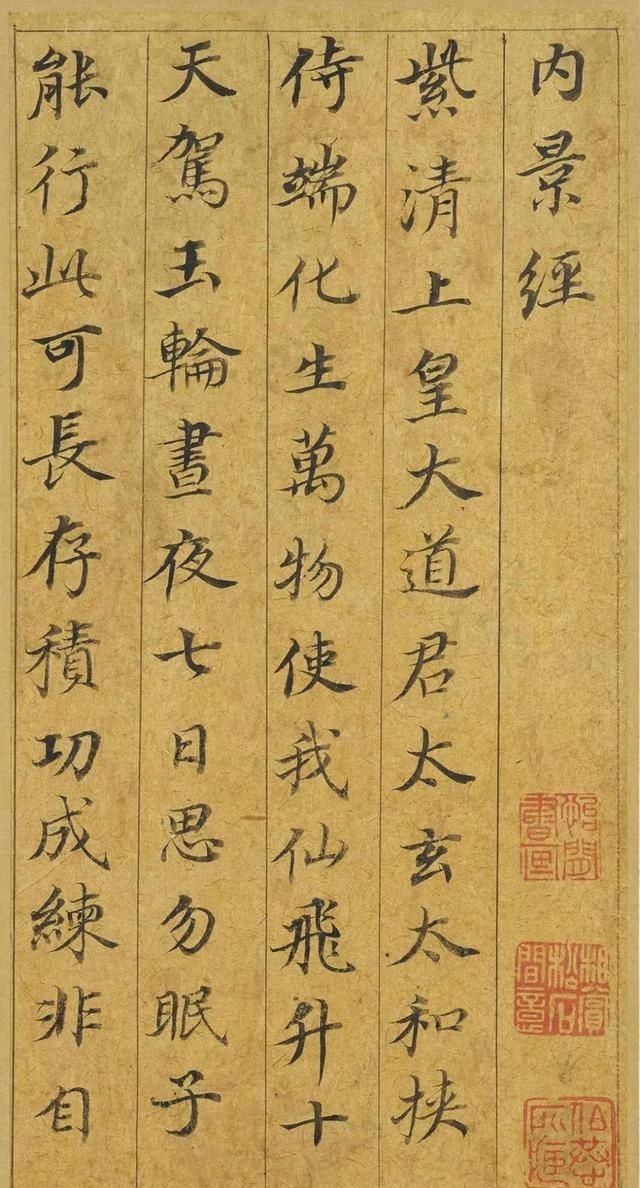 内景經
紫清上皇大道君太玄太和挾
侍端化生萬物使我仙飛升十
天駕玉輪晝夜七日思勿眠子
能行此可長存積功成練非自